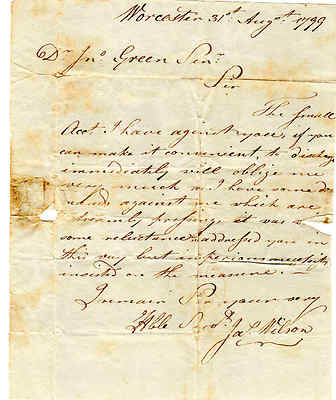 Worcester 31st Augst 1799
Dr Jno Green Senr
Sir
The Small
Acct I have against you, if you
can make it convenient, to discharge
immediately will oblige me
very much as I have some de
mands against me which are
extremely pressing it was with
some reluctance I addressed you on
this very but imperious necessity
insists on the measure. —
I remain Sir your very
Hble Servt Jas Wilson